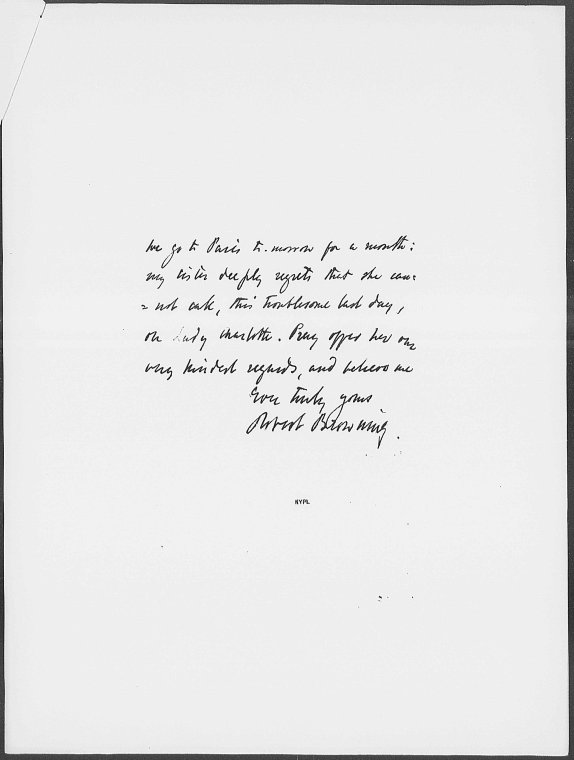 we go to Paris to-morrow for a month:
my sister deeply regrets that she can=
=not call, this troublesome last day,
on Lady Charlotte. Pray offer her our
very kindest regards, and believe me
Ever truly yours
Robert Browning.
NYPL